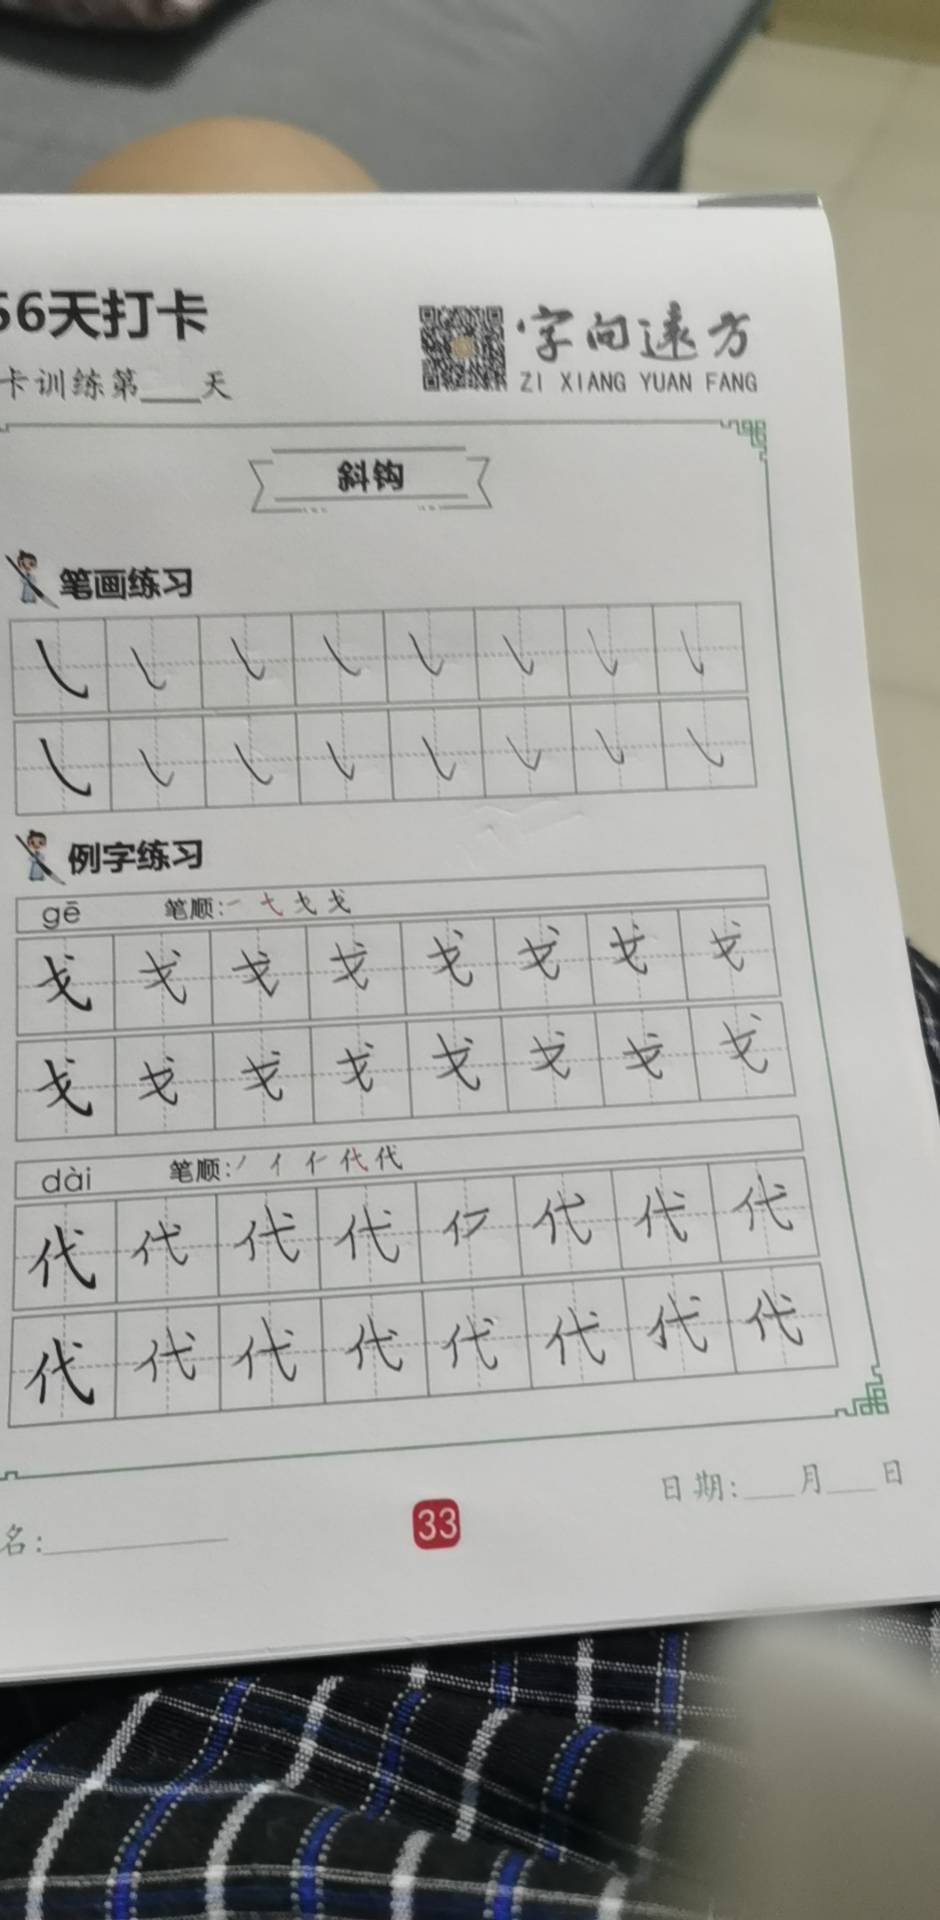 56天打卡
字向远方
ZI XIANG YUAN FANG
卡训练第___天
斜钩
笔画练习
㇂ ㇂ ㇂ ㇂ ㇂ ㇂ ㇂ ㇂
㇂ ㇂ ㇂ ㇂ ㇂ ㇂ ㇂ ㇂
例字练习
gē 笔顺:一 弋 戈 戈
戈 戈 戈 戈 戈 戈 戈 戈
戈 戈 戈 戈 戈 戈 戈 戈
dài 笔顺:丿 亻 仁 代 代
代 代 代 代 代 代 代
代 代 代 代 代 代 代 代
日期:___月___日
名:
33